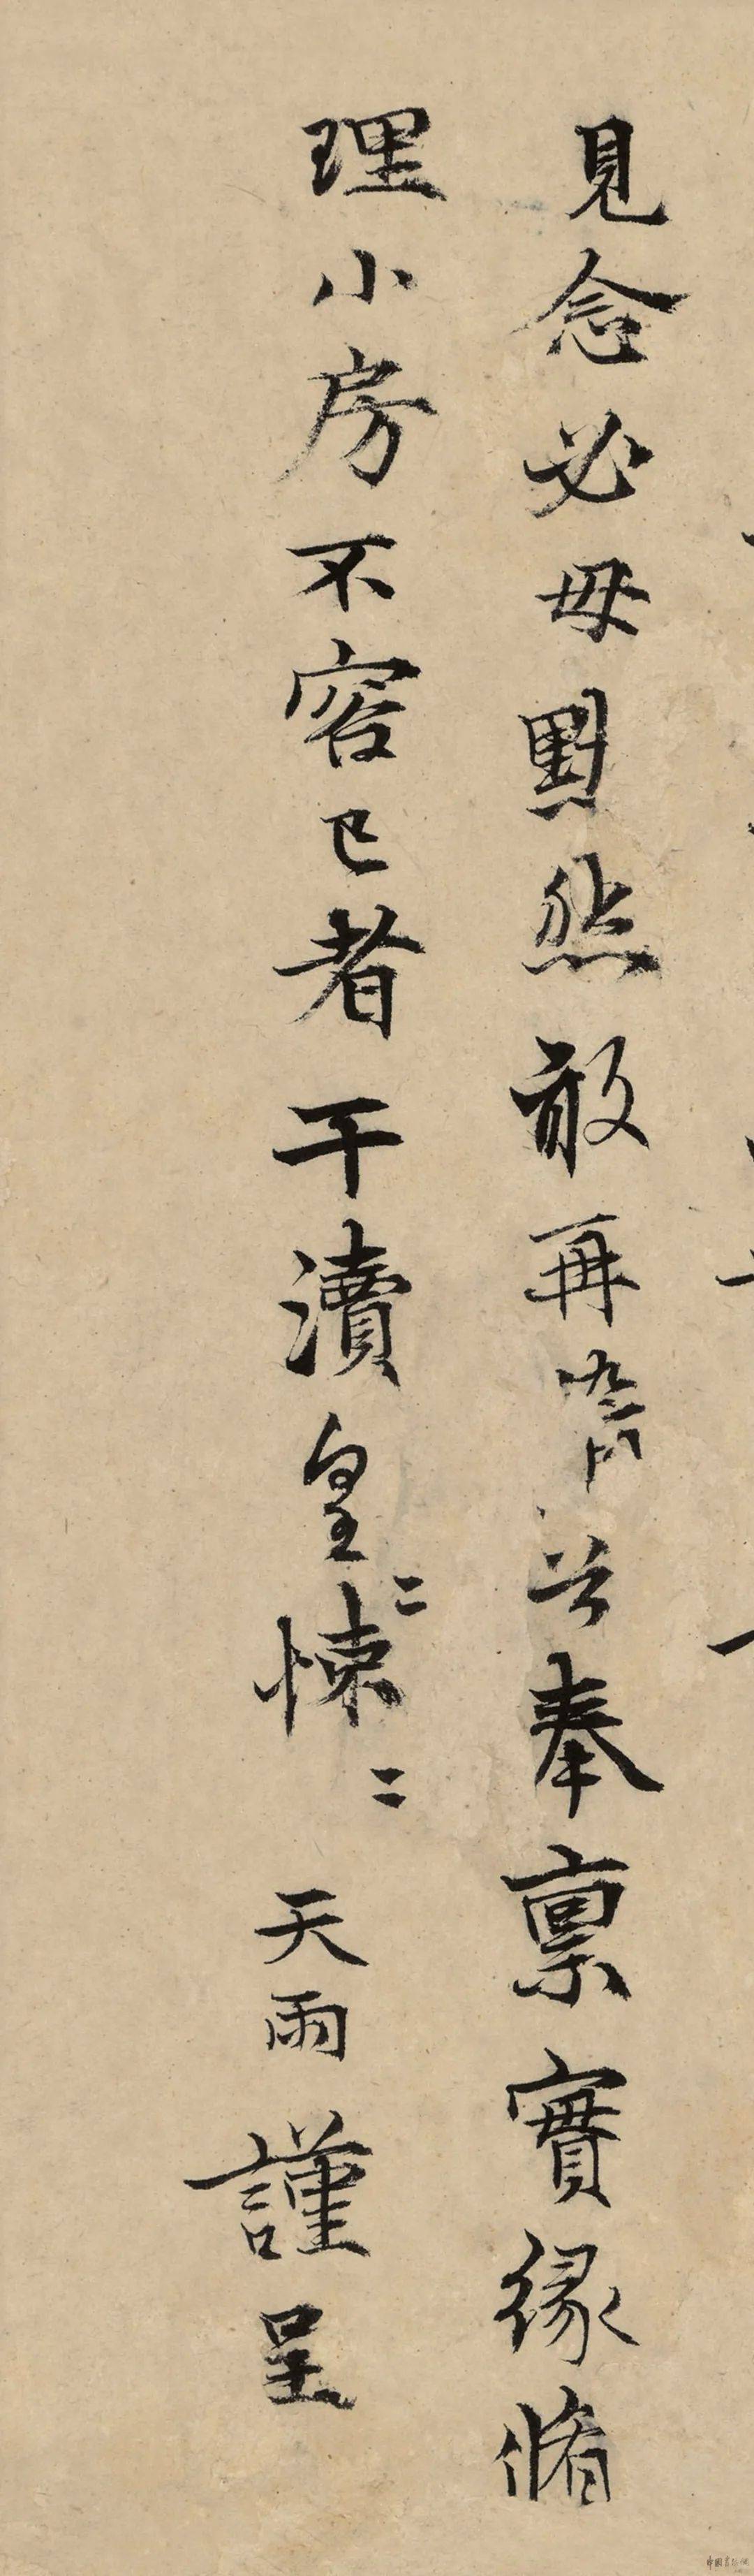 見念必毋默然敢再奉稟實緣脩
理小房不容已者干瀆皇〻悚〻 天雨謹呈